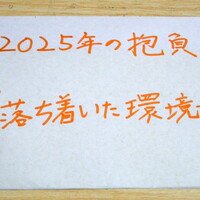 2025年の抱負
落ち着いた環境